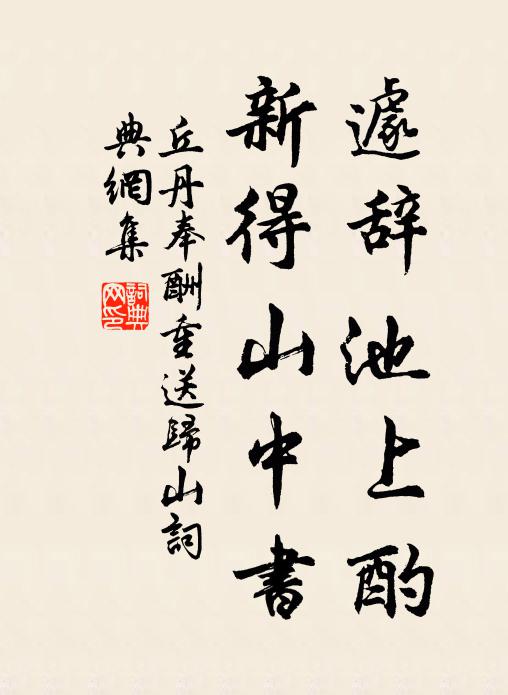 遽辞池上酌
新得山中書
丘丹奉酬重送歸山詞
典網集
詞典網印